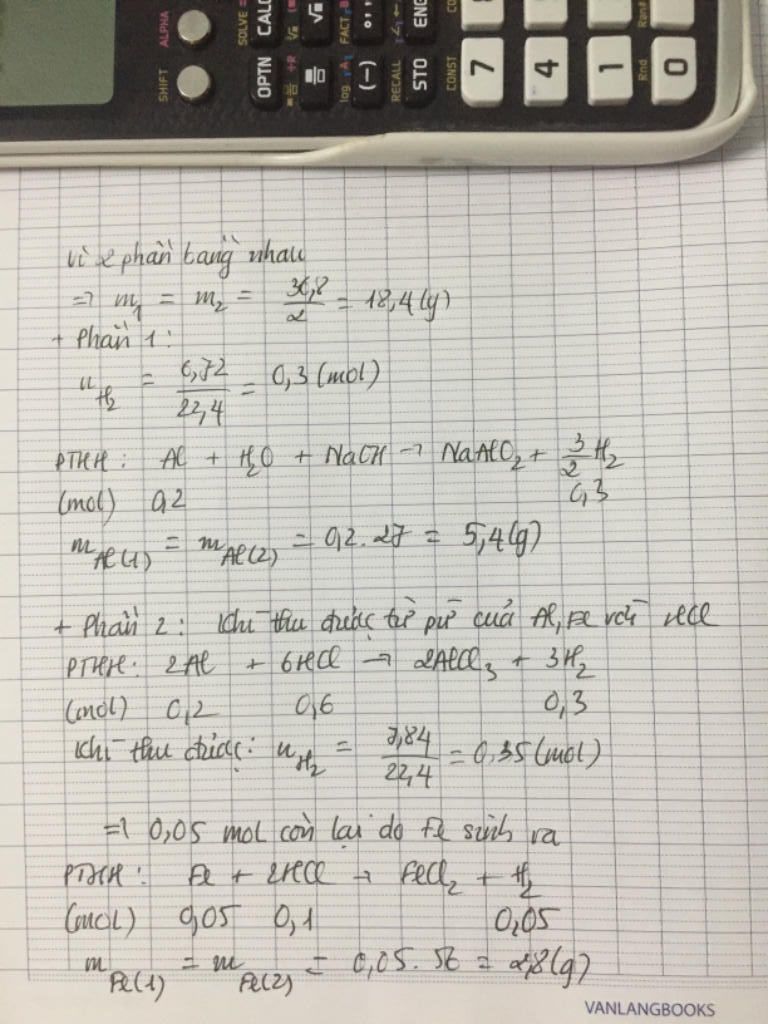 SHIFT ALPHA
OPTN CALC
SOLVE =
(−) FACT
log RECALL
STO ENG
CONST
7 4 1 0
Rnd Ran#
Vì 2 phần bằng nhau
=> m₁ = m₂ = 36,8/2 = 18,4 (g)
+ Phần 1:
n_H₂ = 6,72/22,4 = 0,3 (mol)
PTHH: Al + H₂O + NaOH → NaAlO₂ + 3/2 H₂
(mol) 0,2 0,3
m_Al(1) = m_Al(2) = 0,2 . 27 = 5,4 (g)
+ Phần 2: Khí thu được từ pứ của Al, Fe với HCl
PTHH: 2Al + 6HCl → 2AlCl₃ + 3H₂
(mol) 0,2 0,6 0,3
Khí thu được: n_H₂ = 7,84/22,4 = 0,35 (mol)
=> 0,05 mol còn lại do Fe sinh ra
PTHH: Fe + 2HCl → FeCl₂ + H₂
(mol) 0,05 0,1 0,05
m_Fe(1) = m_Fe(2) = 0,05 . 56 = 2,8 (g)
VANLANGBOOKS